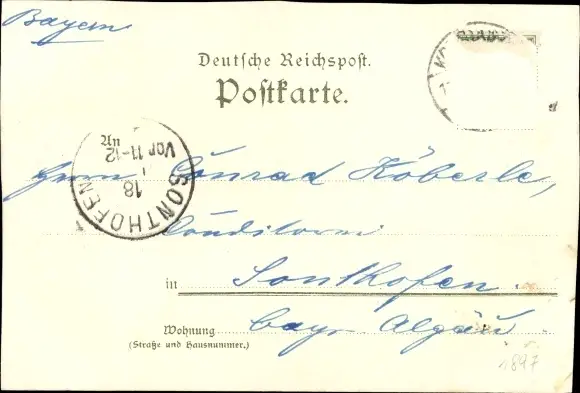 Bayern
Deutsche Reichspost.
Postkarte.
SONTHOFEN
18
Vor 11-12
An
Herrn Conrad Köberle,
Conditorei
in Sonthofen.
Wohnung bayr. Algäu.
(Straße und Hausnummer.)
1897